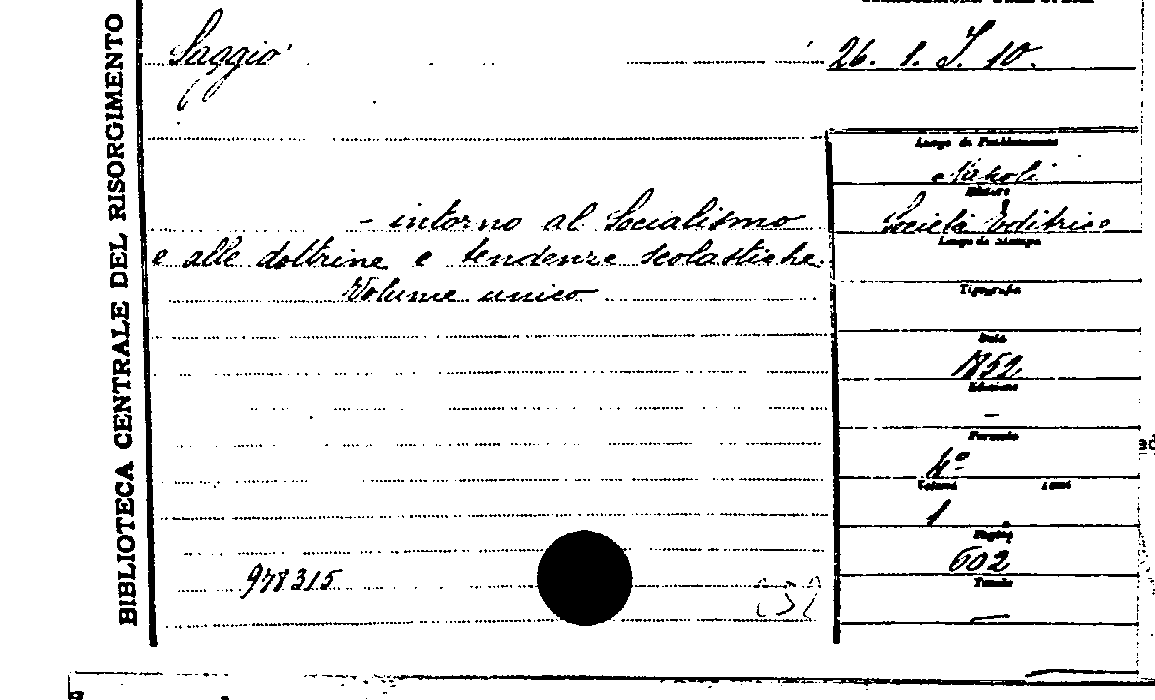 BIBLIOTECA CENTRALE DEL RISORGIMENTO
Saggio
26. 1. I. 10.
- intorno al Socialismo
e alle dottrine e tendenze scolastiche.
Volume unico
Luogo di Pubblicazione
Napoli
Editore
Società Editrice
Luogo di Stampa
Tipografia
Data
1852
Edizione
–
Formato
4º
Volumi
1
Pagine
602
Tavole
—
978315